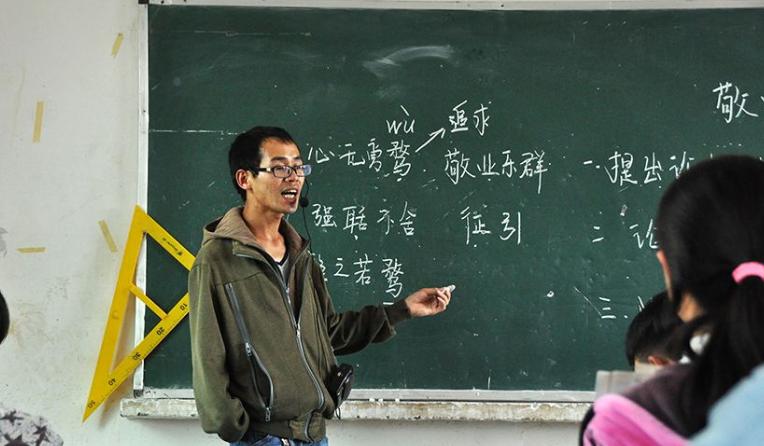 wù 追求
敬业
心无旁骛 敬业乐群 一.提出论
强聒不舍 征引 二 论
之若鹜 三.
10
20
30
40
50